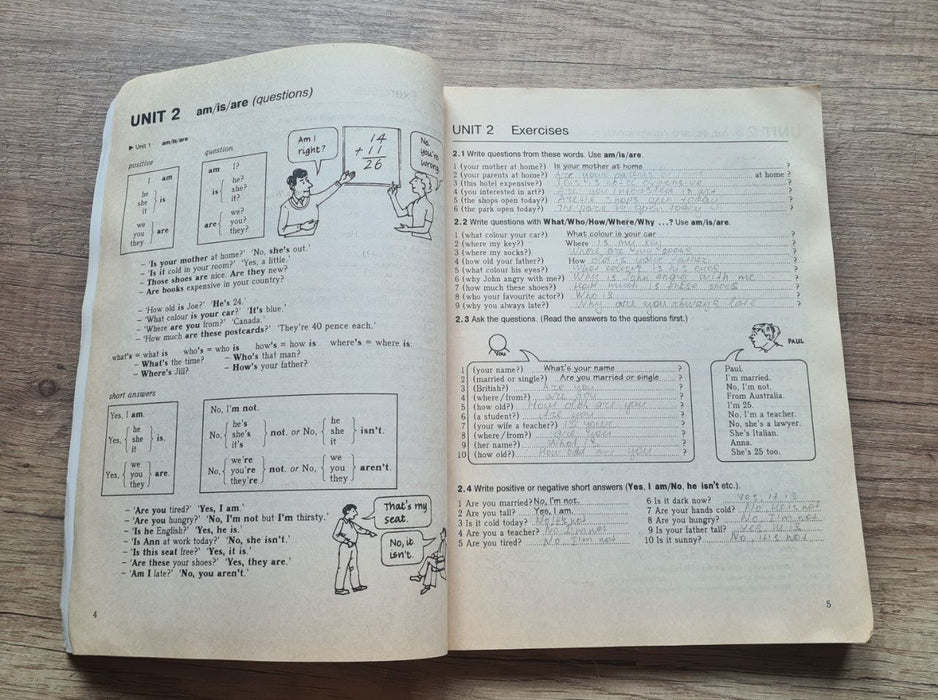 UNIT 2 am/is/are (questions)
▶ Unit 1 am/is/are
positive
question
I am
he
she
it
is
we
you
they
are
am I?
is
he?
she?
it?
are
we?
you?
they?
Am I right?
14
+ 11
26
No. You're wrong
– 'Is your mother at home?' 'No, she's out.'
– 'Is it cold in your room?' 'Yes, a little.'
– Those shoes are nice. Are they new?
– Are books expensive in your country?
– 'How old is Joe?' 'He's 24.'
– 'What colour is your car?' 'It's blue.'
– 'Where are you from?' 'Canada.'
– 'How much are these postcards?' 'They're 40 pence each.'
what's = what is who's = who is how's = how is where's = where is
– What's the time? – Who's that man?
– Where's Jill? – How's your father?
short answers
Yes, I am.
Yes,
he
she
it
is.
Yes,
we
you
they
are.
No, I'm not.
No,
he's
she's
it's
not. or No,
he
she
it
isn't.
No,
we're
you're
they're
not. or No,
we
you
they
aren't.
– 'Are you tired?' 'Yes, I am.'
– 'Are you hungry?' 'No, I'm not but I'm thirsty.'
– 'Is he English?' 'Yes, he is.'
– 'Is Ann at work today?' 'No, she isn't.'
– 'Is this seat free?' 'Yes, it is.'
– 'Are these your shoes?' 'Yes, they are.'
– 'Am I late?' 'No, you aren't.'
That's my seat.
No, it isn't.
4
UNIT 2 Exercises
2.1 Write questions from these words. Use am/is/are.
1 (your mother at home?) Is your mother at home ?
2 (your parents at home?) Are your parents at home ?
3 (this hotel expensive?) This is hotel expensive ?
4 (you interested in art?) Are you interested in art ?
5 (the shops open today?) Are the shops open today ?
6 (the park open today?) The park is open today ?
2.2 Write questions with What/Who/How/Where/Why ...? Use am/is/are.
1 (what colour your car?) What colour is your car ?
2 (where my key?) Where is my key ?
3 (where my socks?) Where are your socks ?
4 (how old your father?) How old is your father ?
5 (what colour his eyes?) What colour is his eyes ?
6 (why John angry with me?) Why is John angry with me ?
7 (how much these shoes?) How much is these shoes ?
8 (who your favourite actor?) Who is ?
9 (why you always late?) Why are you always late ?
2.3 Ask the questions. (Read the answers to the questions first.)
YOU
PAUL
1 (your name?) What's your name ?
2 (married or single?) Are you married or single ?
3 (British?) Are you ?
4 (where/from?) are you ?
5 (how old?) How old are you ?
6 (a student?) Are you ?
7 (your wife a teacher?) Is your ?
8 (where/from?) are you ?
9 (her name?) What is ?
10 (how old?) How old are you ?
Paul.
I'm married.
No, I'm not.
From Australia.
I'm 25.
No, I'm a teacher.
No, she's a lawyer.
She's Italian.
Anna.
She's 25 too.
2.4 Write positive or negative short answers (Yes, I am/No, he isn't etc.).
1 Are you married? No, I'm not.
2 Are you tall? Yes, I am.
3 Is it cold today? No it's not
4 Are you a teacher? No I'm not
5 Are you tired? No, I'm not
6 Is it dark now? Yes, it is
7 Are your hands cold? No, He is not
8 Are you hungry? No, I'm not
9 Is your father tall? Yes He is
10 Is it sunny? No, it is not
5